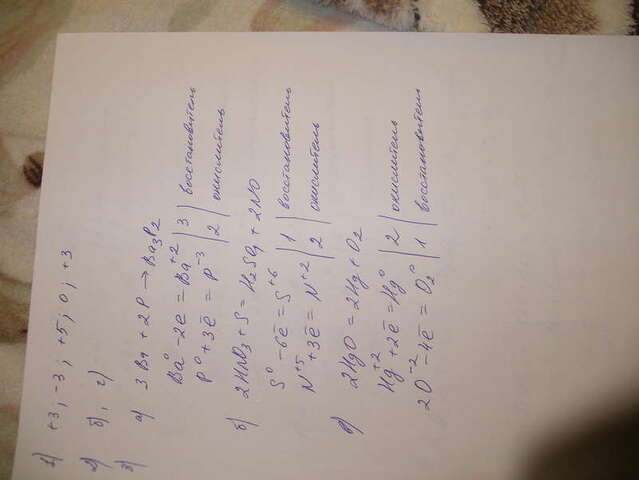 1) +3; -3; +5; 0; +3
2) б), г)
3) а) 3Ba + 2P → Ba3P2
Ba⁰ - 2ē = Ba⁺² | 3 | восстановитель
P⁰ + 3ē = P⁻³ | 2 | окислитель
б) 2HNO3 + S = H2SO4 + 2NO
S⁰ - 6ē = S⁺⁶ | 1 | восстановитель
N⁺⁵ + 3ē = N⁺² | 2 | окислитель
в) 2HgO = 2Hg + O2
Hg⁺² + 2ē = Hg⁰ | 2 | окислитель
2O⁻² - 4ē = O2⁰ | 1 | восстановитель